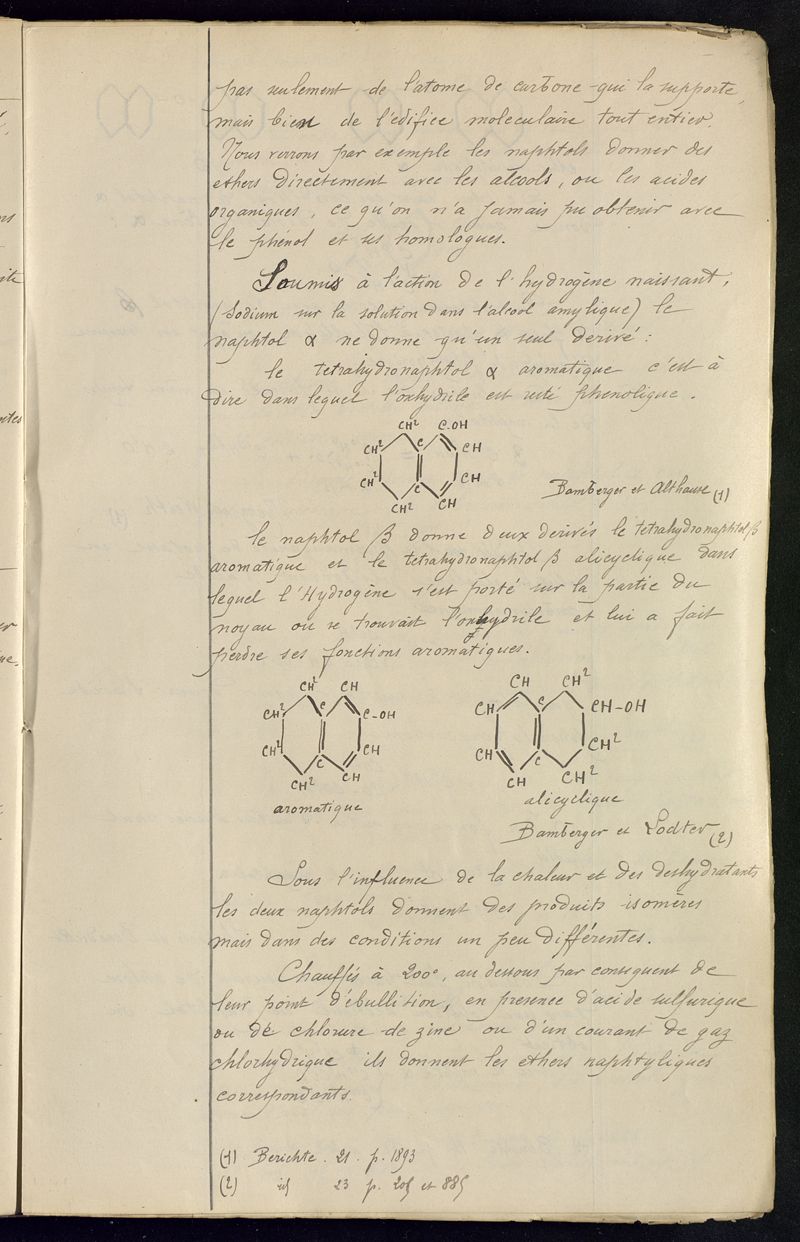 pas seulement de l'atome de carbone qui la supporte,
mais bien de l'édifice moleculaire tout entier.
Nous verrons par exemple les naphtols donner des
ethers directement avec les alcools, ou les acides
organiques, ce qu'on n'a jamais pu obtenir avec
le phénol et ses homologues.
Soumis à l'action de l'hydrogène naissant,
(Sodium sur la solution dans l'alcool amylique) le
naphtol α ne donne qu'un seul derivé :
le tetrahydronaphtol α aromatique c'est à
dire dans lequel l'oxhydrile est resté phenolique.
CH² C-OH
CH² C CH
CH² C CH
CH² CH
Bamberger et Althause (1)
le naphtol β donne deux derivés le tetrahydronaphtol β
aromatique et le tetrahydronaphtol β alicyclique dans
lequel l'Hydrogène s'est porté sur la partie du
noyau ou se trouvait l'oxhydrile et lui a fait
perdre ses fonctions aromatiques.
CH² CH
CH² C C-OH
CH² C CH
CH² CH
aromatique
CH CH²
CH C CH-OH
CH C CH²
CH CH²
alicyclique
Bamberger et Lodter (2)
Sous l'influence de la chaleur et des deshydratants
les deux naphtols donnent des produits isomères
mais dans des conditions un peu différentes.
Chauffés à 200°, au dessous par consequent de
leur point d'ébullition, en presence d'acide sulfurique
ou de chlorure de zinc ou d'un courant de gaz
chlorhydrique ils donnent les ethers naphtyliques
correspondants.
(1) Berichte. 21. p. 1893
(2) id 23 p. et 885